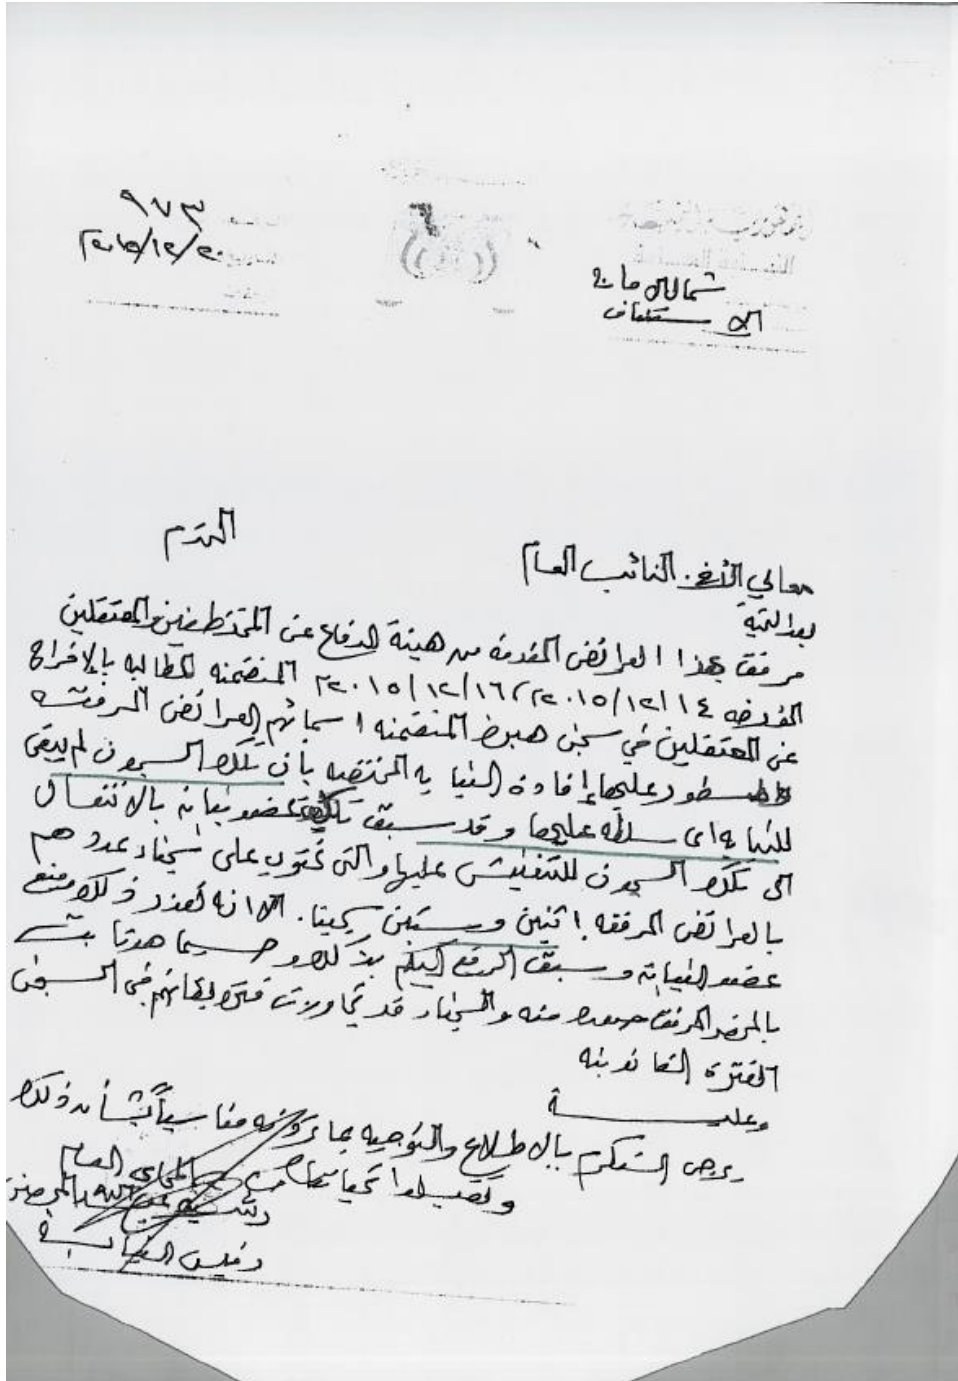 الجمهورية اليمنية
٩٧٣
٢٠١٥/١٢/٢٠
شمال الأمانة
الاستئناف
معالي الأخ. النائب العام المحترم
بعد التحية
مرفق بهذا العرائض المقدمة من هيئة الدفاع عن المختطفين والمعتقلين
المقدمة ٢٠١٥/١٢/١٤م، ٢٠١٥/١٢/١٦م المتضمنه المطالبه بالإفراج
عن المعتقلين في سجن هبره المتضمنه اسمائهم العرائض المرفقه
والمسطور عليها إفادة النيابه المختصه بأن تلك السجون لم يبقى
للنيابه اى سلطه عليها وقد سبق تكليف عضو نيابه بالانتقال
الى تلك السجون للتفتيش عليها والتى تحتوي على سجناء عددهم
بالعرائض المرفقه اثنين وستين سجينا. الا انه تعذر ذلك ومنع
عضو النيابة وسبق الرفع اليكم بذلك وحسبما هو ثابت
بالمحضر المرفق صوره منه والسجناء قد تجاوزت فتره بقائهم في السجن
الفترة القانونيه
وعليــــه
يرجى التكرم بالاطلاع والتوجيه بما ترونه مناسباً بشأن ذلك
وتقبلوا تحياتنا
المحامي العام
رئيس النيابة